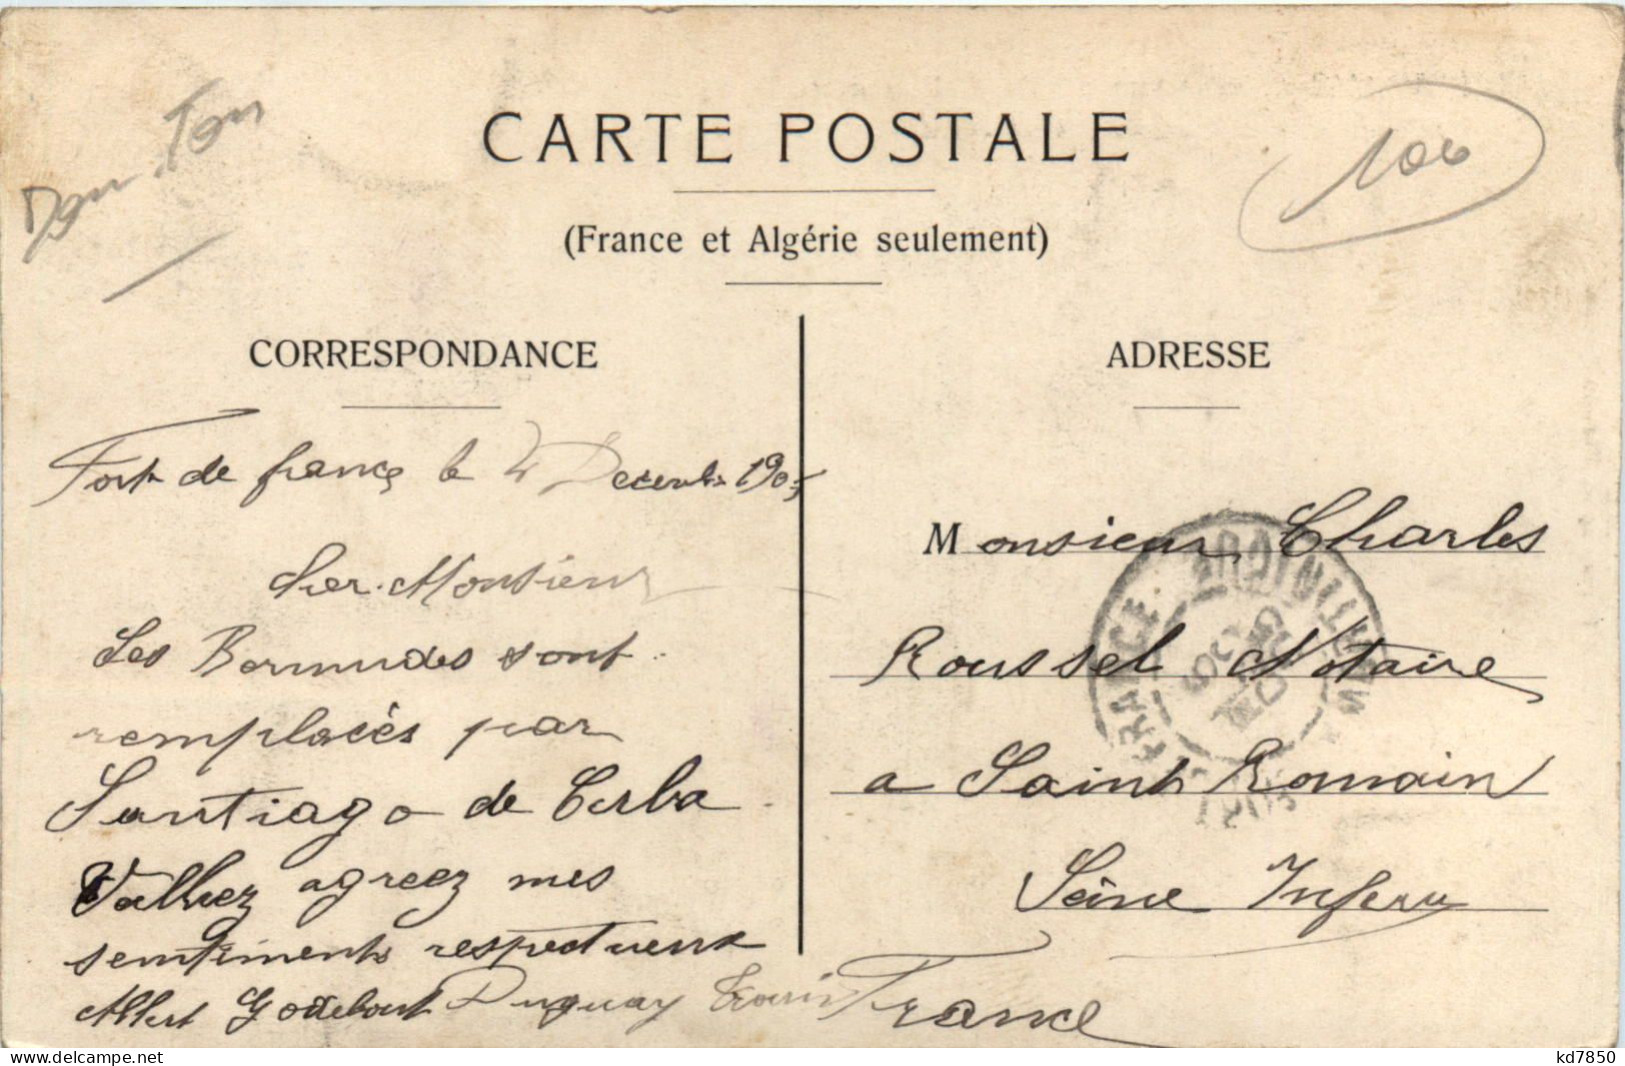 Dom. Ton
106
CARTE POSTALE
(France et Algérie seulement)
CORRESPONDANCE
Fort de france le 4 Decembre 1905
cher Monsieur
Les Bermudes sont
remplacés par
Santiago de Cuba
Valliez agreez mes
sentiments respectueux
Albert Godebout Duguay Trouin
ADRESSE
Monsieur Charles
Roussel Notaire
a Saint Romain
Seine Inferu
France
FRANCE
delcampe.net
kd7850